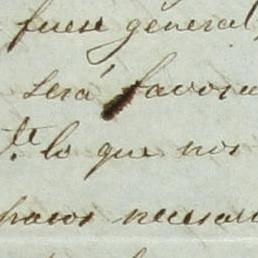 fuese general,
será favora
te lo que nos
pasos necesari